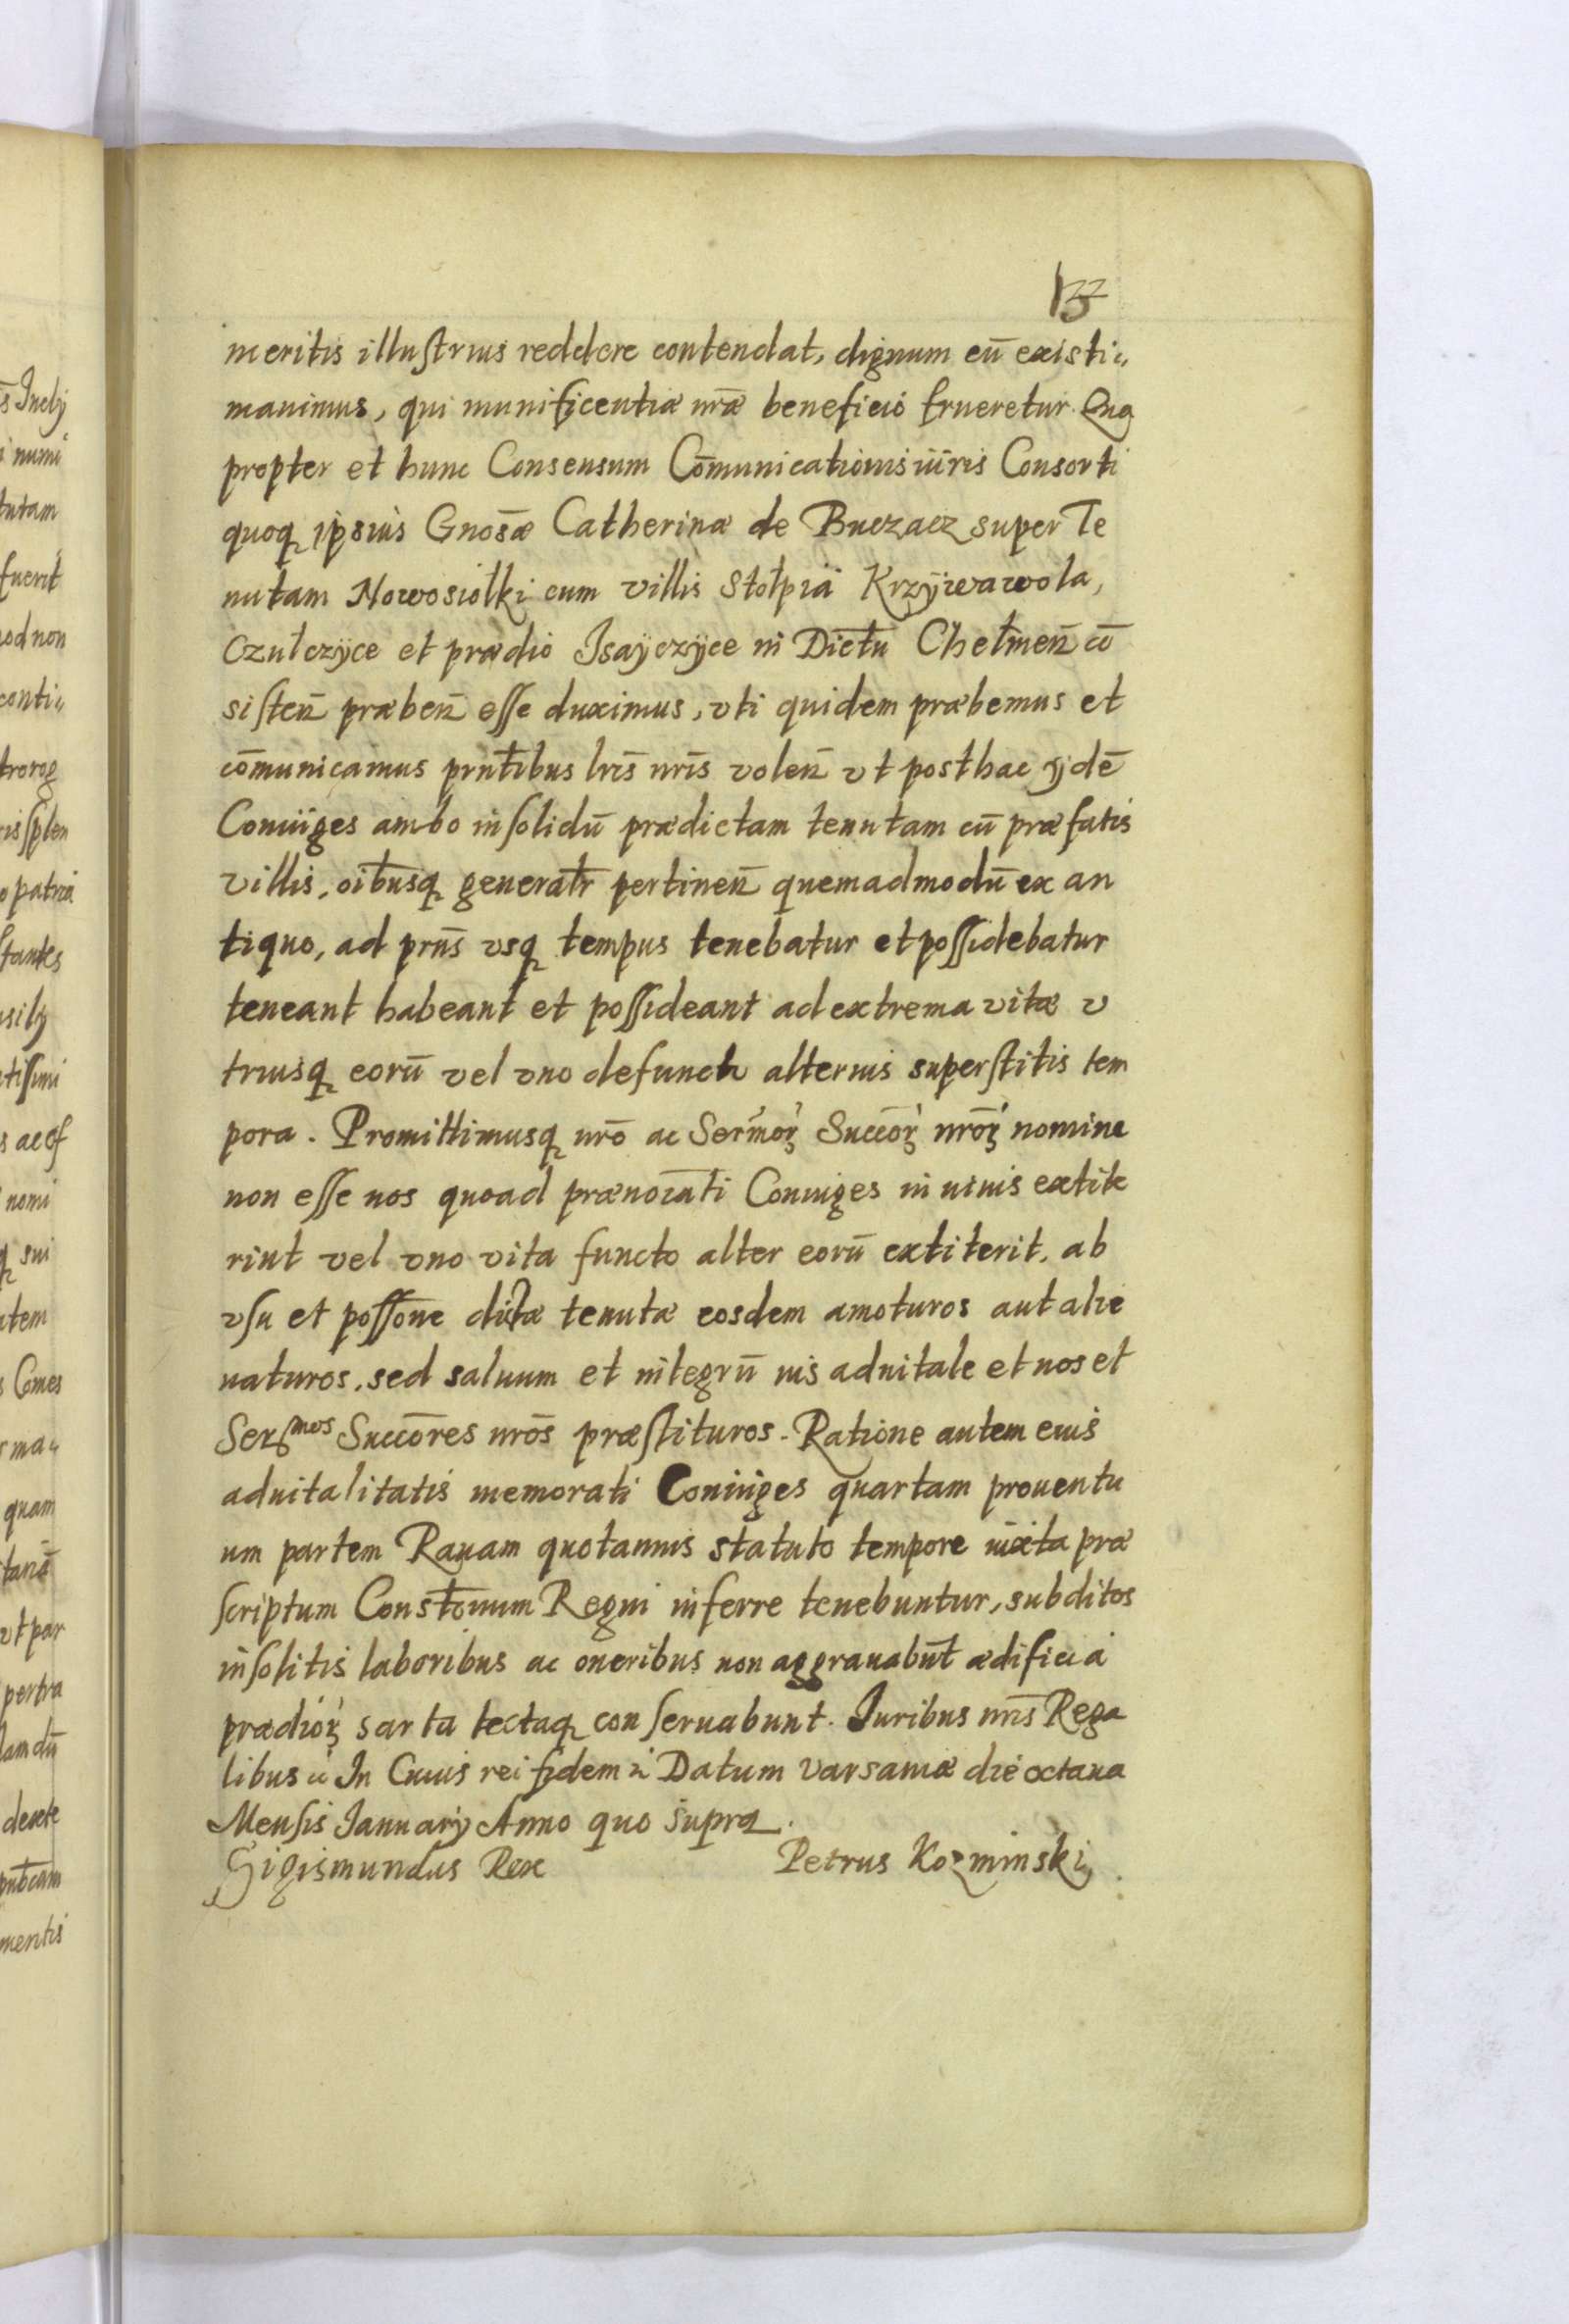 meritis illustrius reddere contendat, dignum eū existi„
mauimus, qui munificentiæ nr̄æ beneficio frueretur. Qua
propter et hunc Consensum Cōmunicationis iuris Consorti
quoq ipsius Gnosæ Catherinæ de Buczacz super Te
nutam Nowosiołki cum villis Stołpia Krzÿwawola,
Czułczÿce et prædio Isaÿczÿce in Dictu Chełmeń cō
sisteń præbeń esse duximus, vti quidem præbemus et
cōmunicamus prntibus lrīs nrīs voleń vt posthac ijdē
Coniuges ambo insolidū prædictam tenutam cū præfatis
villis, oibusq generaltr pertineń quemadmodū ex an
tiquo, ad prn̄s vsq tempus tenebatur et possidebatur
teneant habeant et possideant ad extrema vitæ v
triusq eorū vel vno defuncto alterius superstitis tem
pora. Promittimusq nrō ac Sermoꝝ Succoꝝ nrōꝝ nomine
non esse nos quoad prænoīati Coniuges in uiuis extite
rint vel vno vita functo alter eorū extiterit, ab
vsu et possone dictæ tenutæ eosdem amoturos aut alie
naturos, sed saluum et integrū ius aduitale et nos et
Serᵐᵒˢ Succōres nrōs præstituros. Ratione autem eius
aduitalitatis memorati Coniuges quartam prouentu
um partem Rauam quotannis statuto tempore iuxta præ
scriptum Constōnum Regni inferre tenebuntur, subditos
insolitis laboribus ac oneribus non aggrauabūt ædificia
prædioꝝ sarta tectaq conseruabunt. Iuribus nrīs Rega
libus &c In Cuius rei fidem &c Datum Varsauiæ die octaua
Mensis Ianuarij Anno quo supra.
Sigismundus Rex Petrus Kozminski